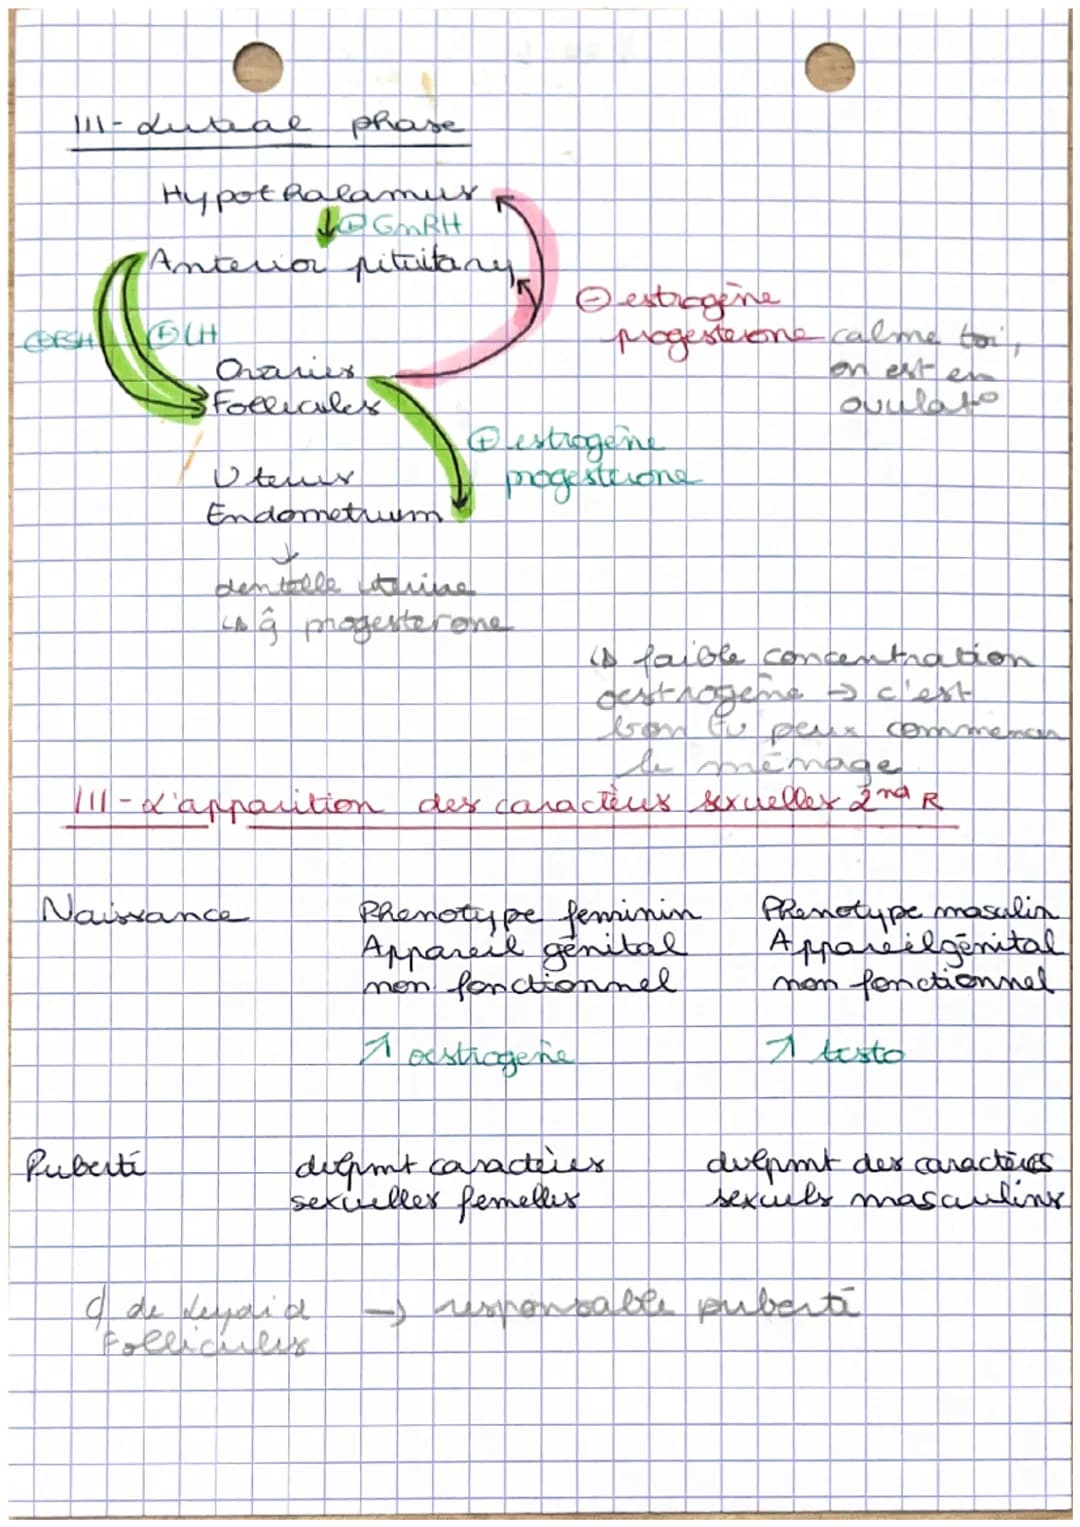 III - Luteal phase
Hypothalamus
↓ ⊕ GmRH
Anterior pituitary
⊖ estrogène
progesterone calme toi,
on est en
ovulat°
⊕FSH ⊕LH
Ovaries
Follicules
⊕ estrogene
progesterone
Uterus
Endometrium
↓
dentelle uterine
↳ ĝ progesterone
↳ faible concentration
oestrogene → c'est
bon tu peux commencer
le ménage
III - L'apparition des caractères sexuelles 2nd R
Naissance Phenotype feminin Phenotype masculin
Appareil génital Appareil génital
non fonctionnel non fonctionnel
↗ oestrogene ↗ testo
Puberté dvlpmt caractères dvlpmt des caractères
sexuelles femelles sexuels masculins
de Leydid → responsable puberté
Follicules